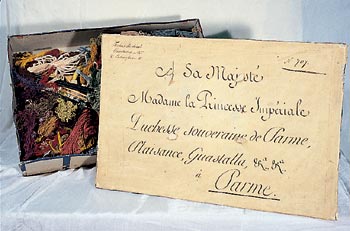 A Sa Majesté
Madame la Princesse Impériale
Duchesse souveraine de Parme,
Plaisance, Guastalla, &c. &c.
à
Parme.